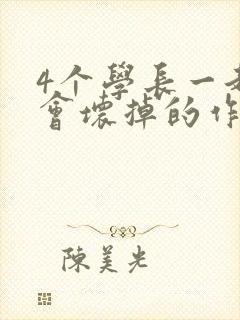 4个學長一起
會壞掉的作
陳美光